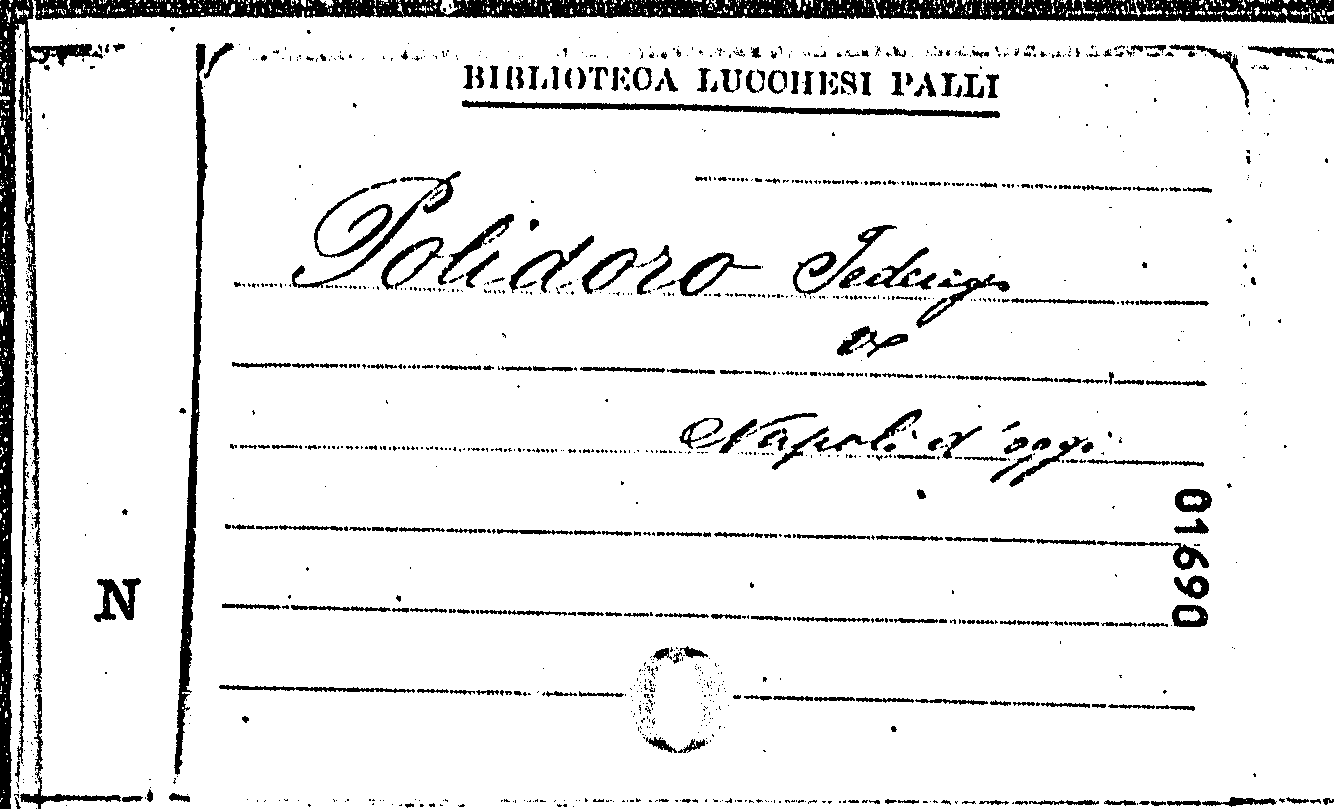 BIBLIOTECA LUCCHESI PALLI
Polidoro Federigo
Napoli d'oggi
01690
N